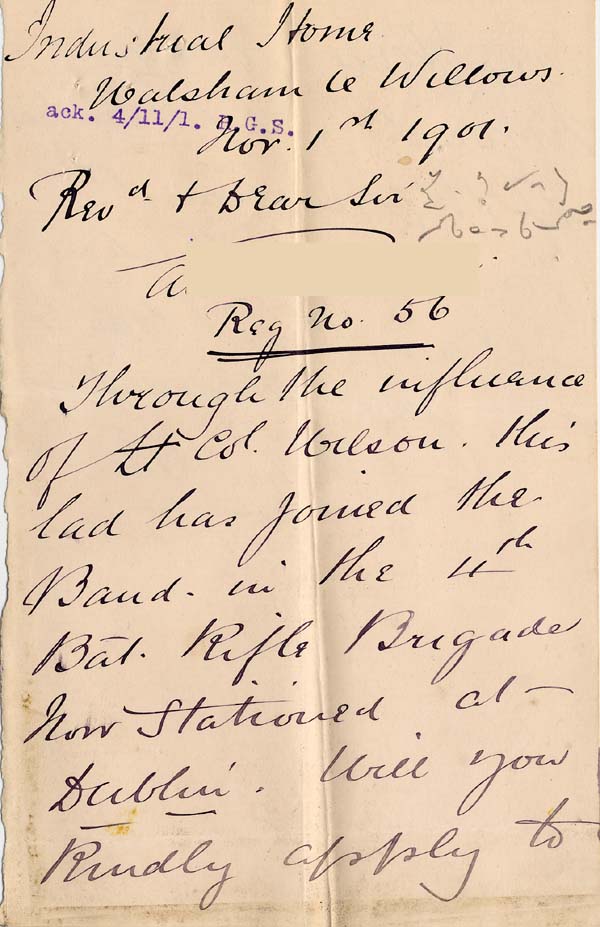 Industrial Home
Walsham le Willows.
ack. 4/11/1. E.G.S.
Nov. 1st 1901.
Revd & Dear Sir
Reg No. 56
Through the influence
of Lt Col. Wilson. this
lad has joined the
Band. in the 4th
Bat. Rifle Brigade
Now Stationed at
Dublin. Will you
Kindly apply to